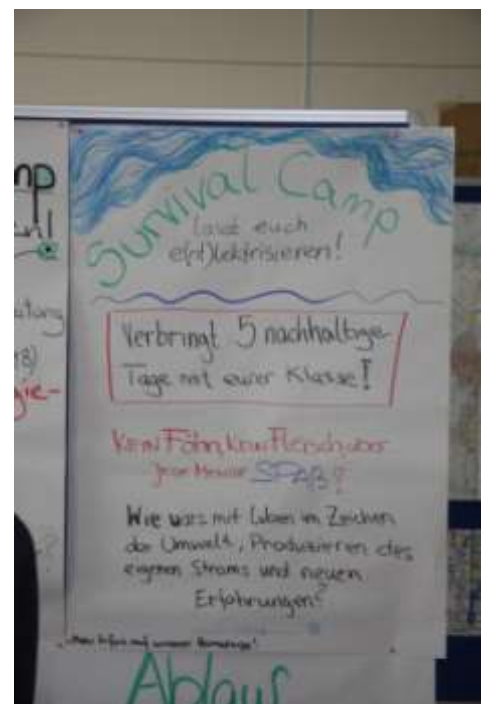 Survival Camp
Lasst euch
e(nt)lektrisieren!
Verbringt 5 nachhaltige
Tage mit eurer Klasse!
Kein Föhn, Kein Fleisch, aber
jede Menge SPAß?
Wie wärs mit Leben im Zeichen
der Umwelt, Produzieren des
eigenen Stroms und neuen
Erfahrungen?
Infos auf unserer Homepage!
Ablauf